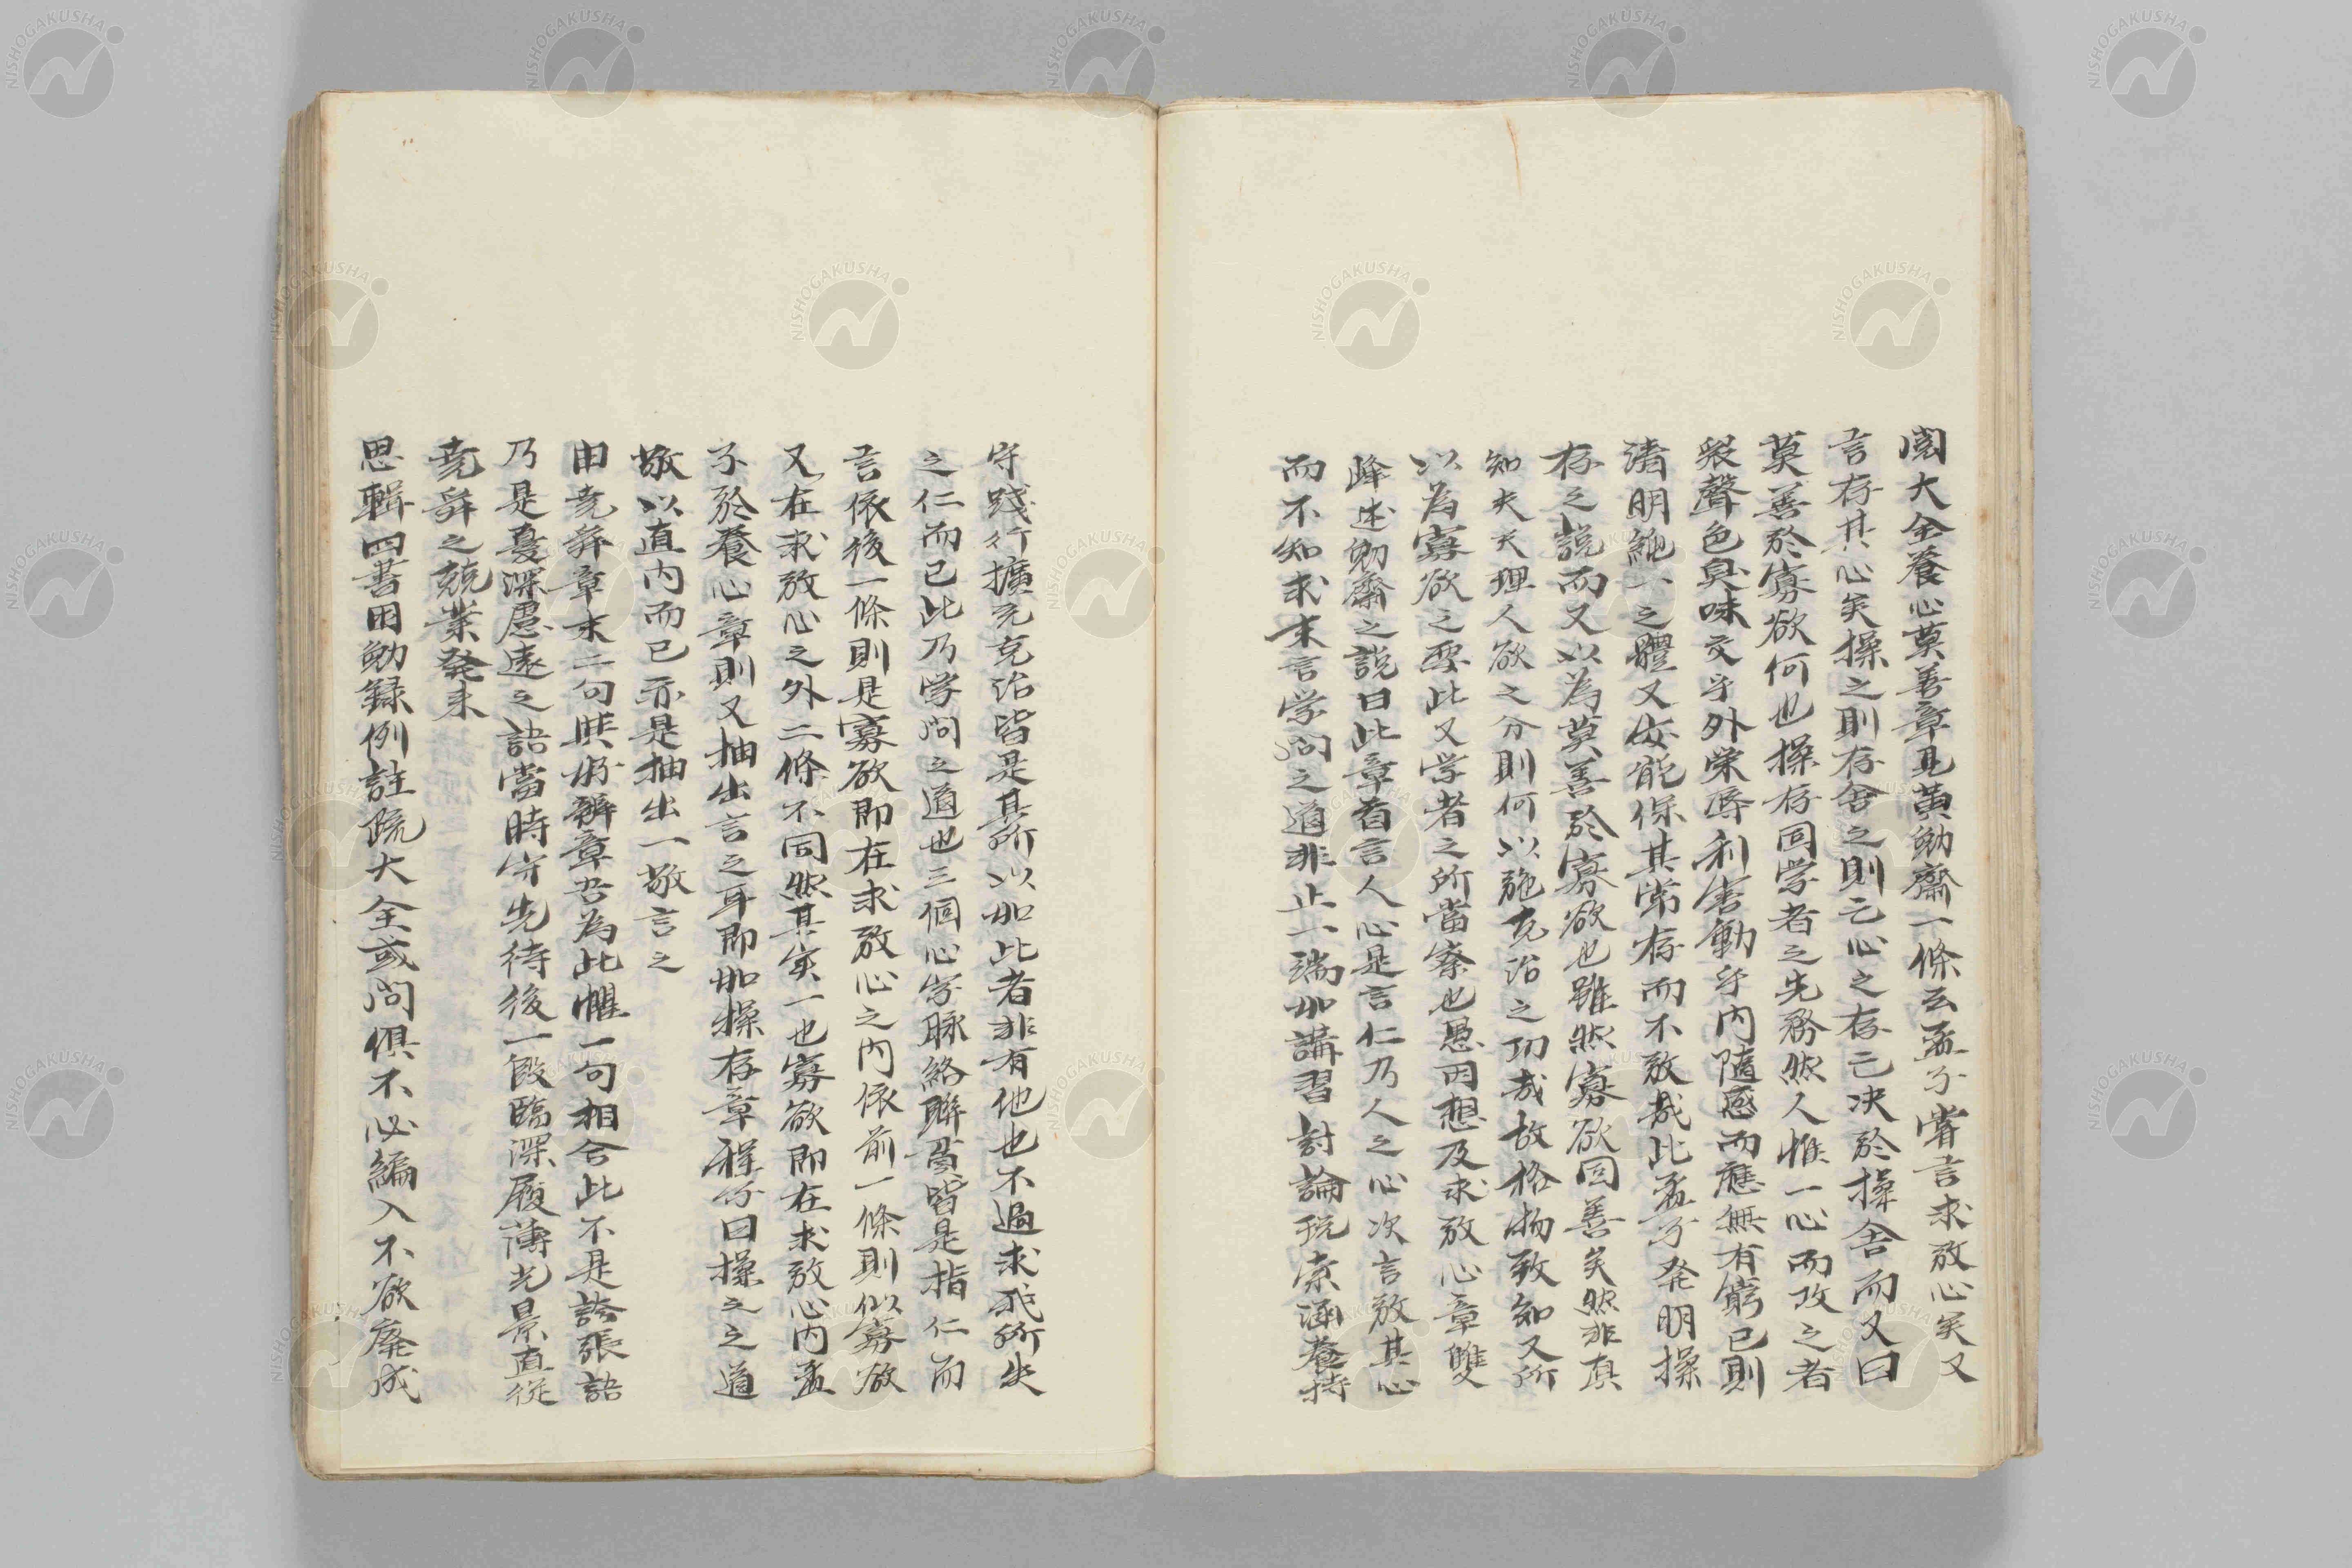 閲大全養心莫善章見黄勉齋一條云孟子嘗言求放心矣又
言存其心矣操之則存舍之則亡心之存亡决於操舍而又曰
莫善於寡欲何也操存固学者之先務然人惟一心而攻之者
衆聲色臭味交乎外荣辱利害動乎内隨感而應無有窮已則
清明純一之體又安能保其常存而不放哉此孟子発明操
存之説而又以為莫善於寡欲也雖然寡欲固善矣然非真
知夫天理人欲之分則何以施克治之功哉故格物致知又所
以為寡欲之要此又学者之所當察也愚因想及求放心章雙
峰述勉齋之説曰此章首言人心是言仁乃人之心次言放其心
而不知求末言学問之道非止一端如講習討論玩索涵養持
守踐行擴充克治皆是其所以如此者非有他也不過求我所失
之仁而已此乃学問之道也三個心字脉絡聯貫皆是指仁而
言依後一條則是寡欲即在求放心之内依前一條則似寡欲
又在求放心之外二條不同然其实一也寡欲即在求放心内孟
子於養心章則又抽出言之耳即如操存章程子曰操之之道
敬以直内而已亦是抽出一敬言之
由尭舜章末二句與好辯章吾為此懼一句相合此不是誇張語
乃是憂深慮遠之語當時守先待後一段臨深履薄光景直從
尭舜之兢業発来
思輯四書困勉録例註疏大全或問俱不必編入不欲廃成
NISHOGAKUSHA